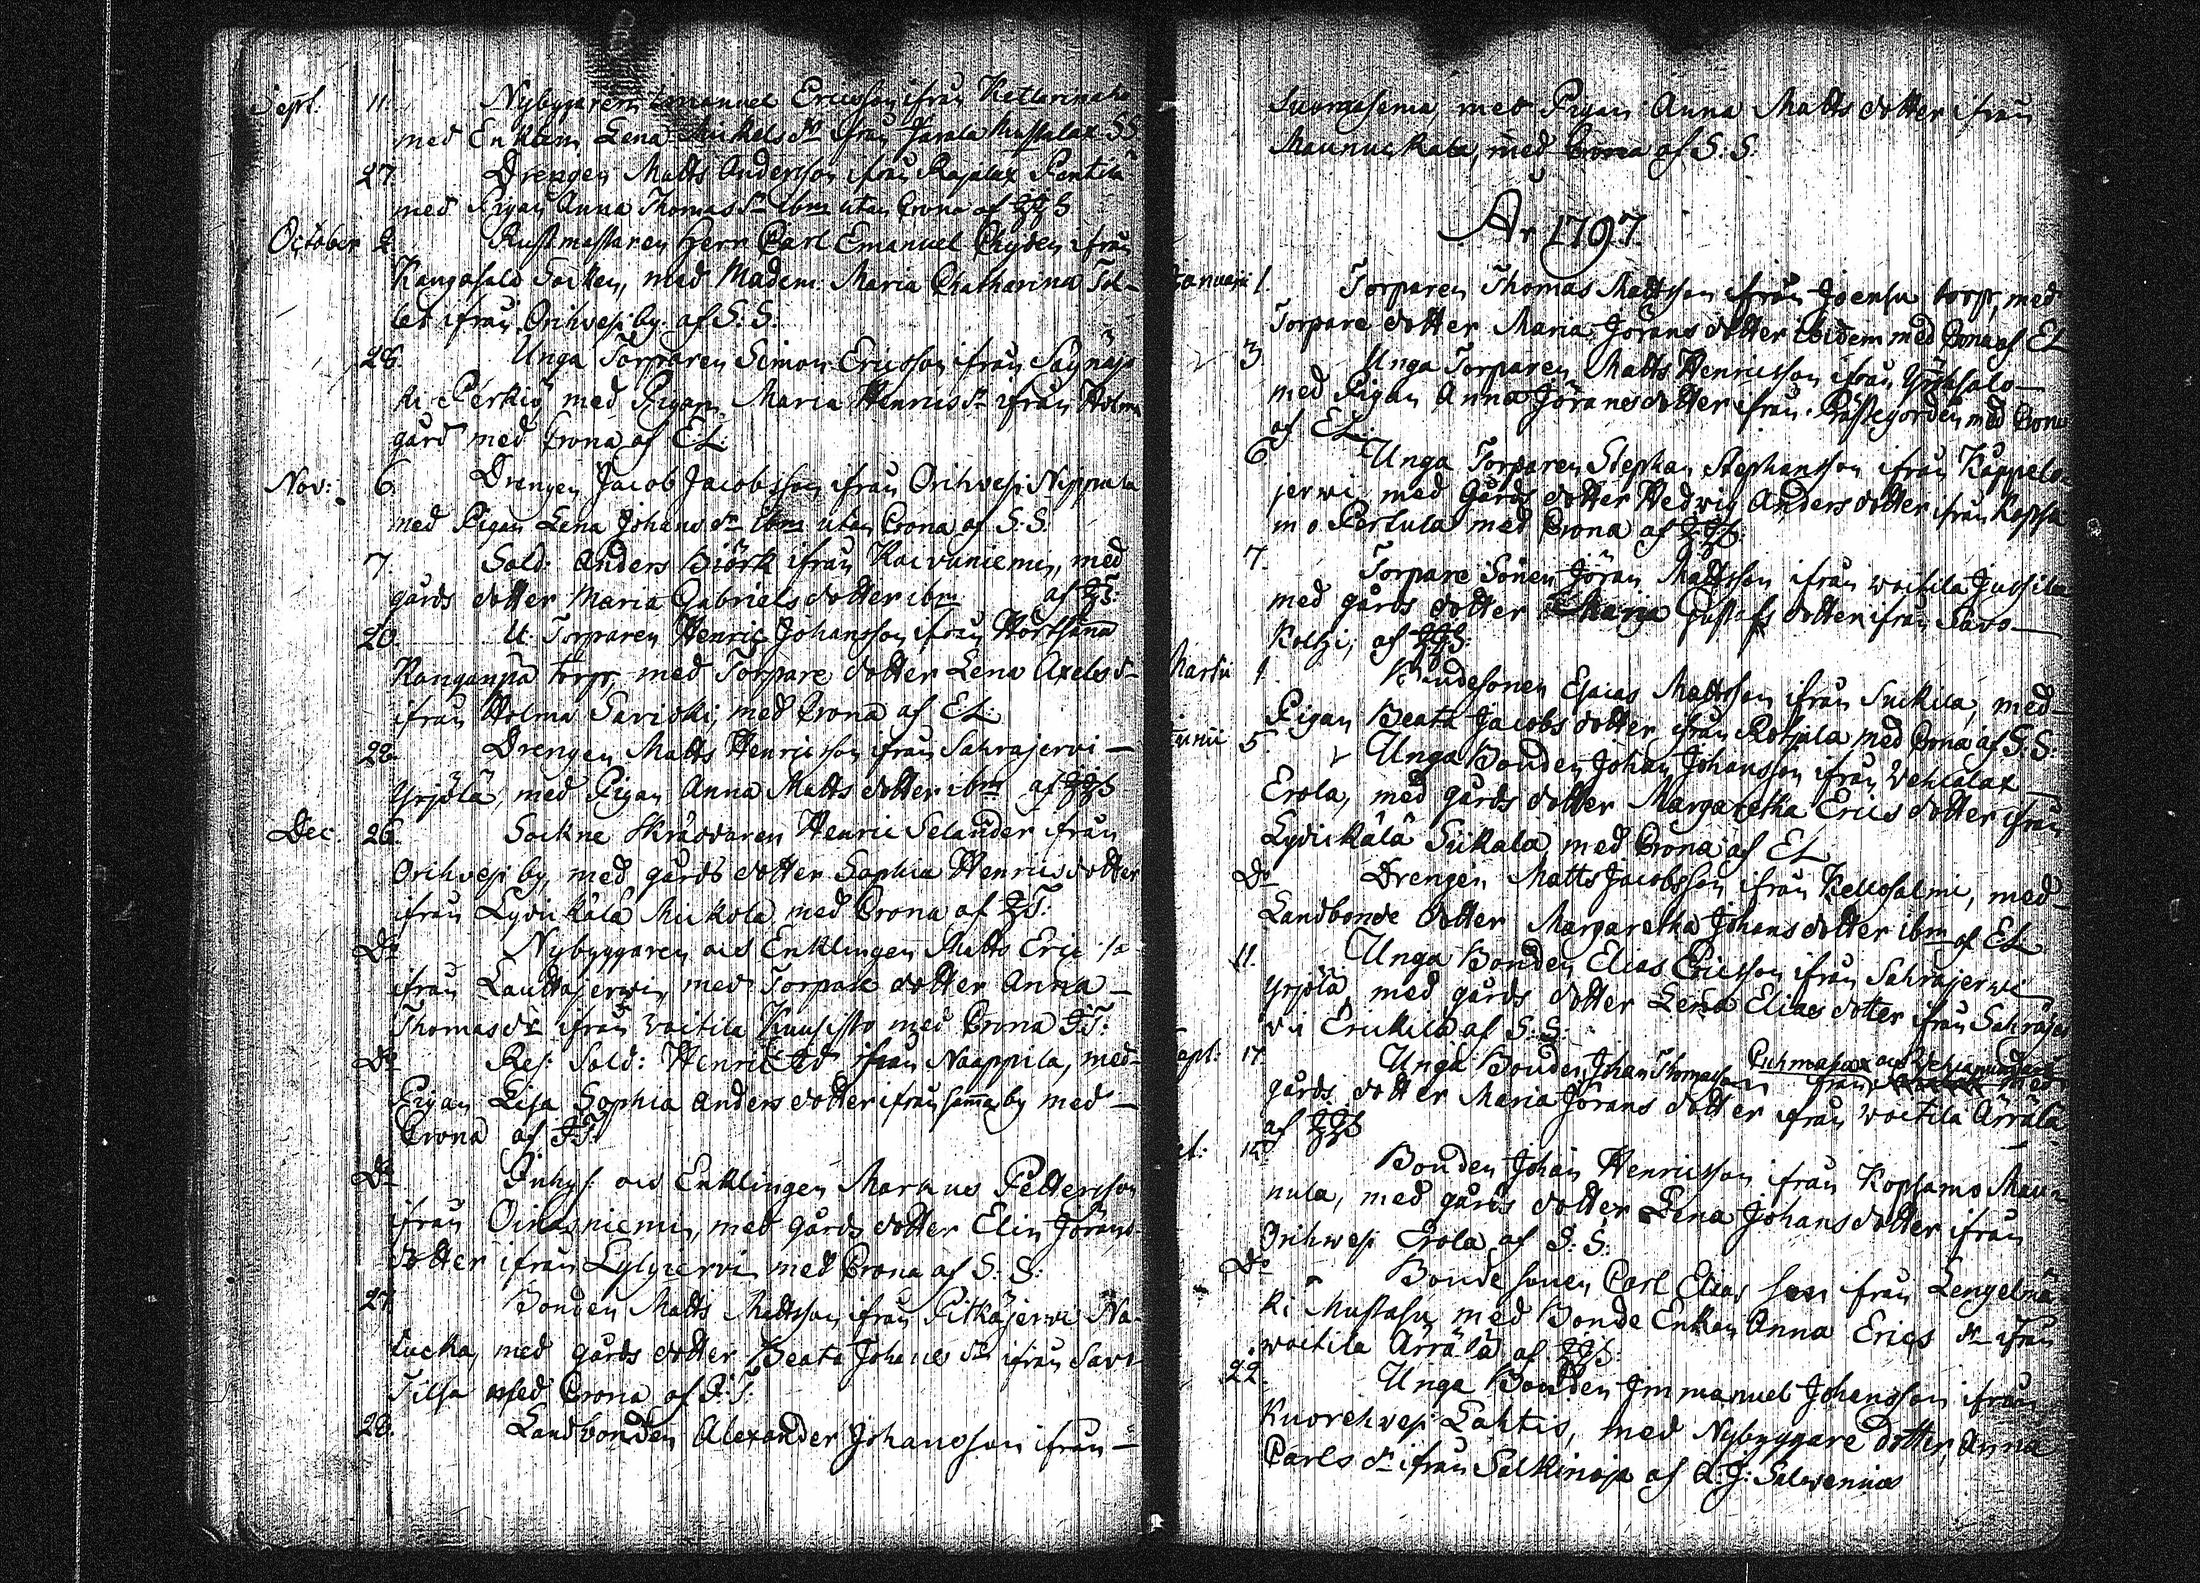 Sept. 11. Nybyggaren Emanuel Ericsson ifrån
med Enkan Lena Mickels dr ifrån SS
27. Drengen Matts Andersson ifrån Rajalax Pentilä
med Pigan Anna Thomas dr ibm utan Crona af
October 2. Rustmästaren Herr Carl Emanuel ifrån
Kangasala Socken, med Madem: Maria Chatharina Tol-
let ifrån Orihvesi by af S: S.
28. Unga Torparen Simon Ericsson ifrån Säynäjo
ki Perkiö, med Pigan Maria Henrics dr ifrån Holma
gård med Crona af EL.
Nov: 6. Drengen Jacob Jacobsson ifrån Orihvesi Nippula
med Pigan Lena Johans dr ibm utan Crona af S: S.
7. Sold: Anders Björk ifrån Koivuniemi, med
gårds dotter Maria Gabriels dotter ibm af
20. U. Torparen Henric Johansson ifrån
Kanganpä torp, med Torpare dotter Lena Axels d-
ifrån Holma Savioki, med Crona af EL.
22. Drengen Matts Henricsson ifrån Sahrajervi —
Yrjölä, med Pigan Anna Matts dotter ibm af
Dec. 26. Sockne Skräddaren Henric Selander ifrån
Orihvesi by, med gårds dotter Sophia Henrics dotter
ifrån Lyÿtikälä Mickola med Crona af
Do Nybyggaren och Enklingen Matts Eric
ifrån Lauttajerwi, med Torpare dotter Anna —
Thomas dr ifrån Voitila Kuusisto med Crona
Do Res: Sold: Henric ifrån Naappila, med
Pigan Lisa Sophia Anders dotter ifrån samma by med —
Crona af
Do Inhys: och Enklingen Marcus Pettersson
ifrån Oinasniemi, med gårds dotter Elin Jörans
dotter ifrån Lylyjervi med Crona af S: S:
27. Bonden Matts Mattsson ifrån Pitkäjerwi Na-
med gårds dotter Beata Johans dr ifrån
med Crona af
28. Landbonden Alexander Johansson ifrån —
Suomasema, med Pigan Anna Matts dotter ifrån
Maunuskala, med Crona af S: S.
År 1797.
Januarii 1. Torparen Thomas Mattsson ifrån Joensu torp, med
Torpare dotter Maria Jörans dotter ibidem med Crona af EL
3. Unga Torparen Matts Henricsson ifrån —
med Pigan Anna Jörans dotter ifrån Prästegården med Crona
af EL.
6. Unga Torparen Stephan Stephansson ifrån Kappelo-
jerwi, med Gårds dotter Hedwig Anders dotter ifrån
mo Pertula med Crona af
7. Torpare Sonen Jöran Mattsson ifrån Voitila Jussila
med gårds dotter Maria Gustafs dotter ifrån Savo—
Koski, af
Martii 1. Bondesonen Esaias Mattsson ifrån Suikila, med
Pigan Beata Jacobs dotter ifrån Rohjala med Crona af S: S:
Junii 5. Unga Bonden Johan Johansson ifrån Vehkalax —
Erola, med gårds dotter Margaretha Erics dotter ifrån
Lyÿtikälä Siikala med Crona af EL
Do Drengen Matts Jacobsson ifrån Kellosalmi, med
Landbonde dotter Margaretha Johans dotter ibm af EL
11. Unga Bonden Elias Ericsson ifrån Sahrajerwi
Yrjölä, med gårds dotter Lena Elias dotter ifrån Sahrajer
vi Erickilä af S: S:
Sept: 17. Unga Bonden Johan Thomasson ifrån med
gårds dotter Maria Jörans dotter ifrån Voitila Ärrälä
af
15. Bonden Johan Henricsson ifrån Kopsamo Mau-
nula, med gårds dotter Lena Johans dotter ifrån
Orihwesi Erola af S: S:
Do Bonde sonen Carl Elias son ifrån Lengelmä
ki Mustasu, med Bonde Enkan Anna Erics dr ifrån
Voitila Ärrälä af
22. Unga Bonden Immanuel Johansson ifrån
Kuorehwesi Lahtis, med Nybyggare dotter Anna
Carls dr ifrån Selkinoja af A: J: Salwenius